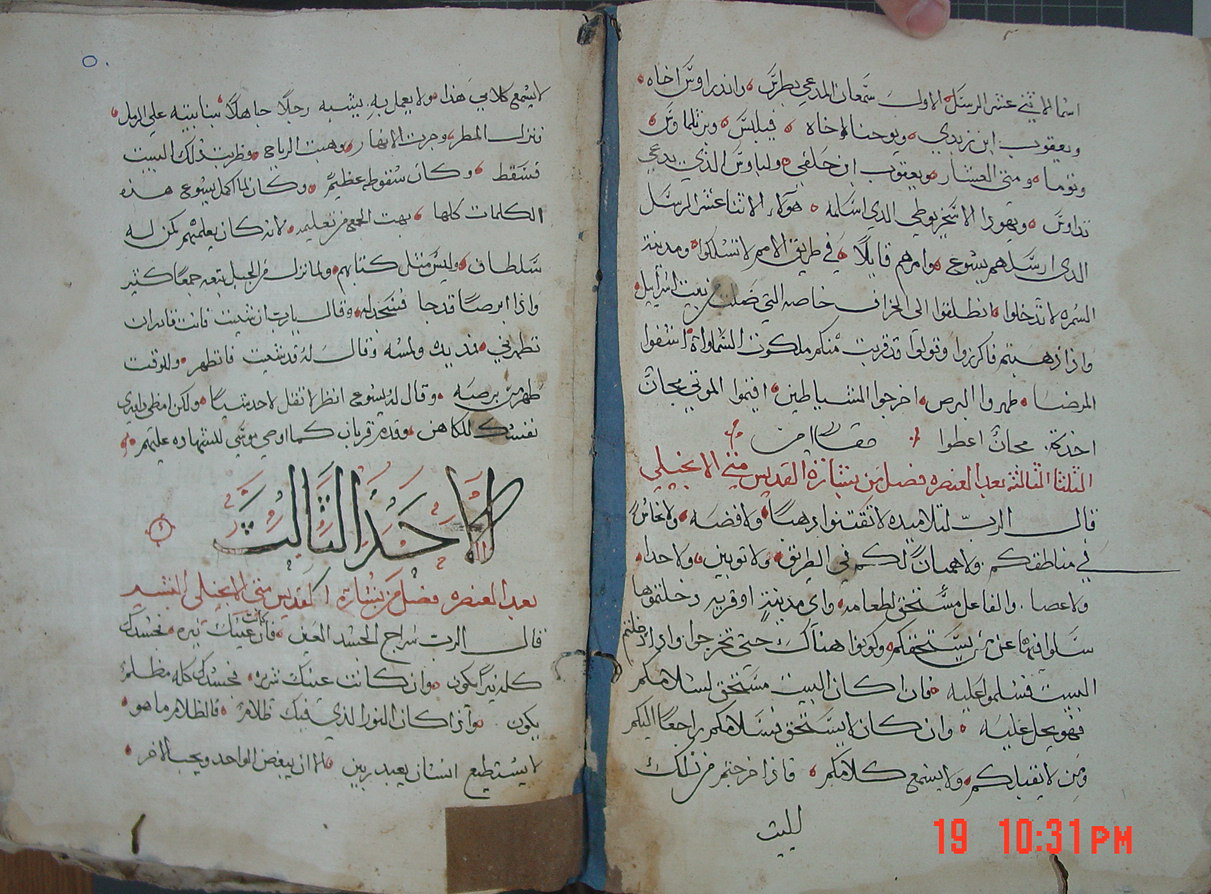 اسما الاثني عشر الرسل الاول سمعان المدعي بطرس واندراوس اخاه
ويعقوب ابن زبدي ويوحنا اخاه فيلبس وبرتلماوس
وتوما ومتى العشار ويعقوب ابن حلفي ولباوس الذي يدعي
تداوس ويهودا الاسخريوطي الدي اسلمه هولاء الاثنا عشر الرسل
الدي ارسلهم يسوع وامرهم قايلًا في طريق الامم لا تسلكوا ومدينة
السمره لا تدخلوا انطلقوا الى الخراف خاصه التي ضلت من بيت اسرائيل
واذا ذهبتم فاكرزوا وقولوا قد قربت منكم ملكوت السماوات اشفوا
المرضا طهروا البرص اخرجوا الشياطين اقيموا الموتي مجانً
اخذتم مجانً اعطوا
الثلثا الثالثة بعد العنصره فصل من بشارة القديس متي الانجيلي
قال الرب لتلاميذه لا تقتنوا دهبًا ولا فضه ولا نحاسً
في مناطقكم ولا هميانً لكم في الطريق ولا ثوبين ولا حدا
ولا عصا والفاعل مستحق لطعامه واي مدينةٍ او قريه دخلتموها
سلوا فيها عن من يستحقكم وكونوا هناك حتى تخرجوا واذا دخلتم
البيت فسلموا عليه فان كان البيت مستحق لسلامكم
فهو يحل عليه وان كان لا يستحق فسلامكم راجعًا اليكم
ومن لا يقبلكم ولا يسمع كلامكم فاذا خرجتم من ذلك
19 10:31 PM
لا يسمع كلامي هذا ولا يعمل به يشبه رجلًا جاهلًا بنا بيته على الرمل
فنزل المطر وجرت الانهار وهبت الرياح وضربت ذلك البيت
فسقط وكان سقوطه عظيمً وكان لما اكمل يسوع هذه
الكلمات كلها بهت الجمع من تعليمه لانه كان يعلمهم كمن له
سلطان وليس مثل كتابهم ولما نزل من الجبل تبعه جمعًا كثير
واذا ابرصًا قد جا فسجد له وقال يارب ان شيت فانت قادر ان
تطهرني فمد يده ولمسه وقال له قد شيت فاتطهر وللوقت
طهر من برصه وقال له يسوع انظر لا تقل لاحد شيًا ولكن امضي واري
نفسك للكاهن وقدم قربان كما اوصي موسي للشهاده عليهم
الاحد الثالث
بعد العنصره فصل من بشارة القديس متى الانجيلي البشير
قال الرب سراج الجسد العين فان كانت عينك نيره فجسدك
كله نيرًا يكون وان كانت عينك شريره فجسدك كله مظلمً
يكون واذا كان النور الذي فيك ظلامً فالظلام ما هو
لا يستطيع انسان يعبد ربين لما ان يبغض الواحد ويحب الاخر